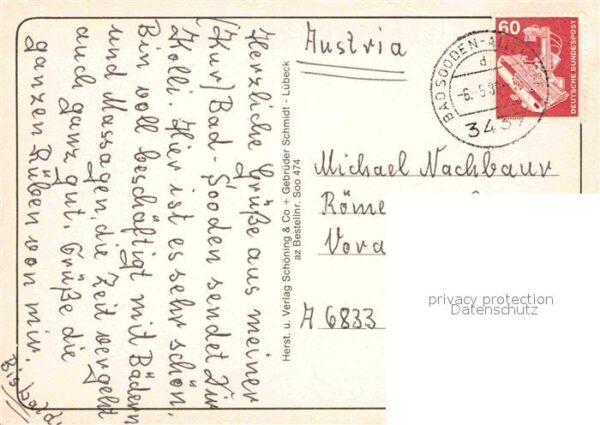 Herzliche Grüße aus meiner
(Kur) Bad-Sooden sendet Dir
Holli. Hier ist es sehr schön.
Bin voll beschäftigt mit Bädern
und Massagen, die Zeit vergeht
auch ganz gut. Grüße die
ganzen Rüben von mir.
Bis bald
Herst. u. Verlag Schöning & Co + Gebrüder Schmidt - Lübeck
az Bestellnr. Soo 474
Austria
60
DEUTSCHE BUNDESPOST
BAD SOODEN-
d
3437
Michael Nachbaur
Röme
Vora
A 6833
privacy protection
Datenschutz